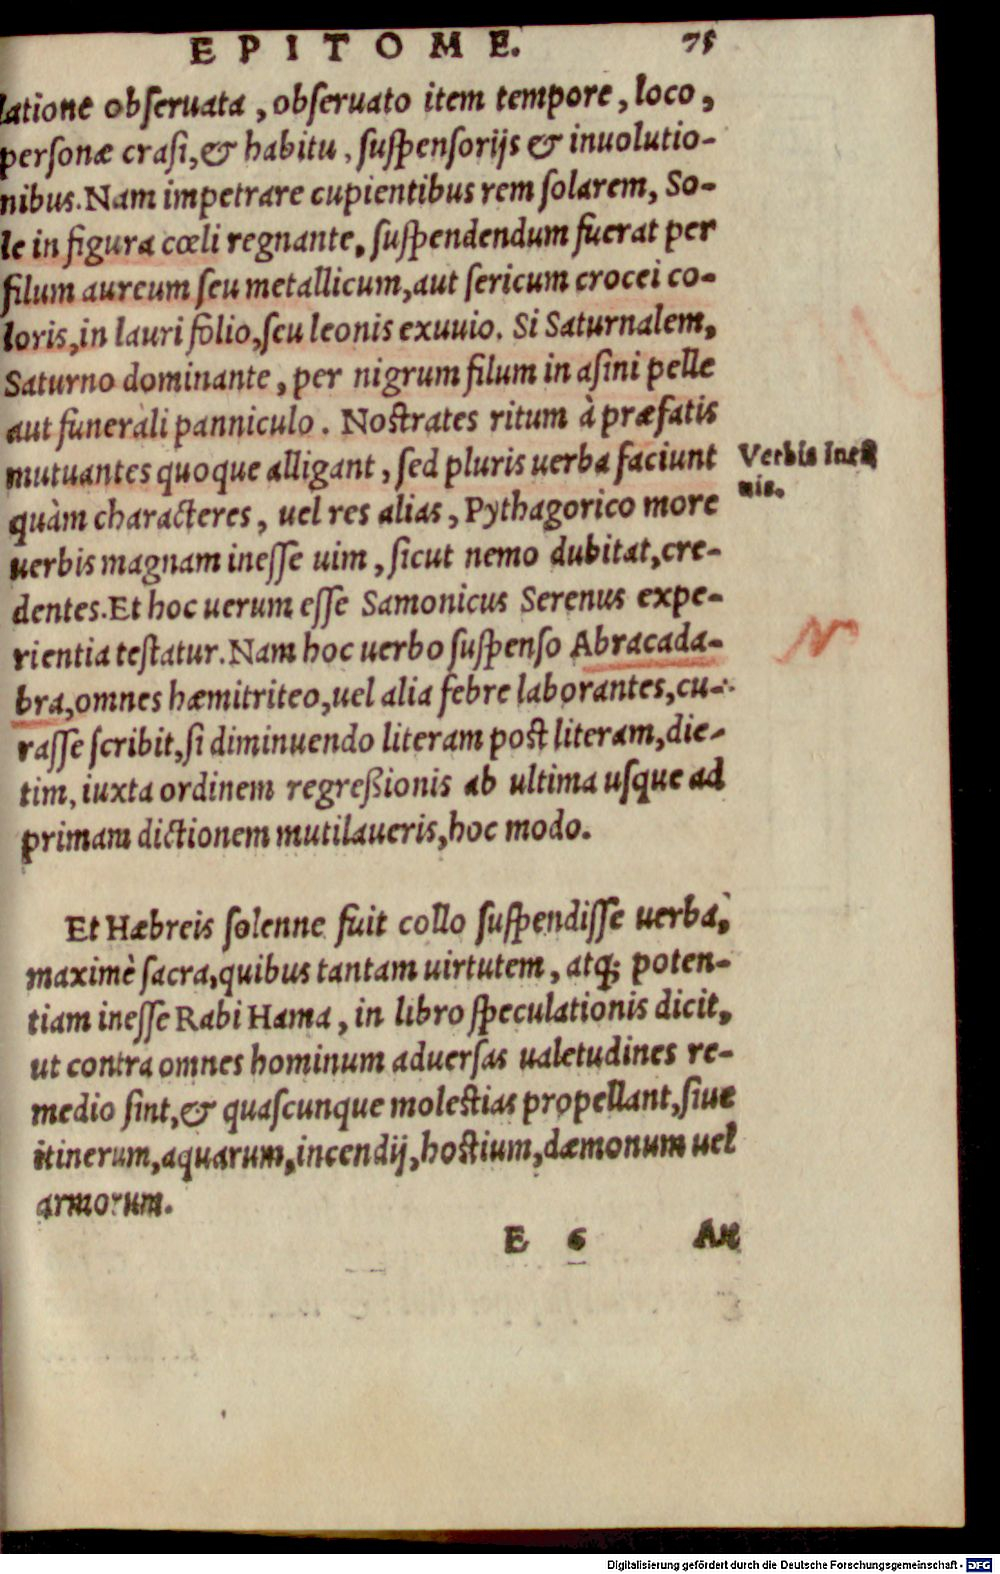 EPITOME. 75
latione obſeruata, obſeruato item tempore, loco,
perſonæ craſi, & habitu, ſuſpenſorijs & inuolutio-
nibus. Nam impetrare cupientibus rem ſolarem, So-
le in figura cœli regnante, ſuſpendendum fuerat per
filum aureum ſeu metallicum, aut ſericum crocei co-
loris, in lauri folio, ſeu leonis exuuio. Si Saturnalem,
Saturno dominante, per nigrum filum in aſini pelle
aut funerali panniculo. Noſtrates ritum à præfatis
mutuantes quoque alligant, ſed pluris uerba faciunt
quàm characteres, uel res alias, Pythagorico more
uerbis magnam ineſſe uim, ſicut nemo dubitat, cre-
dentes. Et hoc uerum eſſe Samonicus Serenus expe-
rientia teſtatur. Nam hoc uerbo ſuſpenſo Abracada-
bra, omnes hæmitriteo, uel alia febre laborantes, cu-
raſſe ſcribit, ſi diminuendo literam poſt literam, die-
tim, iuxta ordinem regreßionis ab ultima uſque ad
primam dictionem mutilaueris, hoc modo.
Et Hæbreis ſolenne fuit collo ſuſpendiſſe uerba,
maximè ſacra, quibus tantam uirtutem, atq; poten-
tiam ineſſe Rabi Hama, in libro ſpeculationis dicit,
ut contra omnes hominum aduerſas ualetudines re-
medio ſint, & quaſcunque moleſtias propellant, ſiue
itinerum, aquarum, incendij, hoſtium, dæmonum uel
armorum.
E 6 An
Verbis ineſt
Digitalisierung gefördert durch die Deutsche Forschungsgemeinschaft - DFG